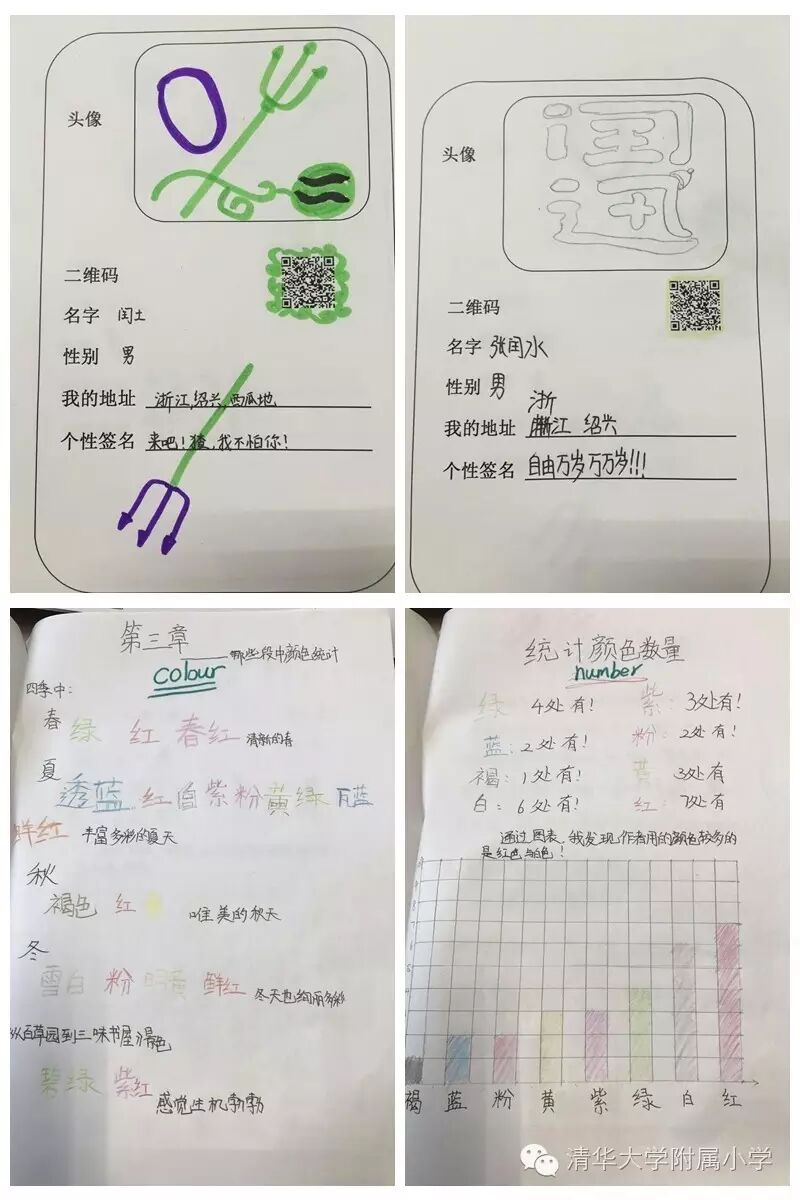 头像
二维码
名字 闰土
性别 男
我的地址 浙江,绍兴,西瓜地
个性签名 来吧!猹,我不怕你!
头像
闰
二维码
名字 张闰水
性别 男
浙
我的地址 江 绍兴
个性签名 自由万岁万万岁!!!
第三章
colour 哪些段中颜色统计
四季中:
春 绿 红 春红 清新的春
夏
透蓝 红 白 紫 粉 黄 绿 蓝
鲜红 丰富多彩的夏天
秋
褐色 红 唯美的秋天
冬
雪白 粉 明黄 鲜红 冬天也绚丽多彩
从百草园到三味书屋 颜色
碧绿 紫红 感觉生机勃勃
统计颜色数量
number
绿 4处有! 紫: 3处有!
蓝: 2处有! 粉: 2处有!
褐: 1处有! 黄 3处有
白: 6处有! 红: 7处有
通过图表,我发现作者用的颜色较多的
是红色与白色!
褐 蓝 粉 黄 紫 绿 白 红
清华大学附属小学